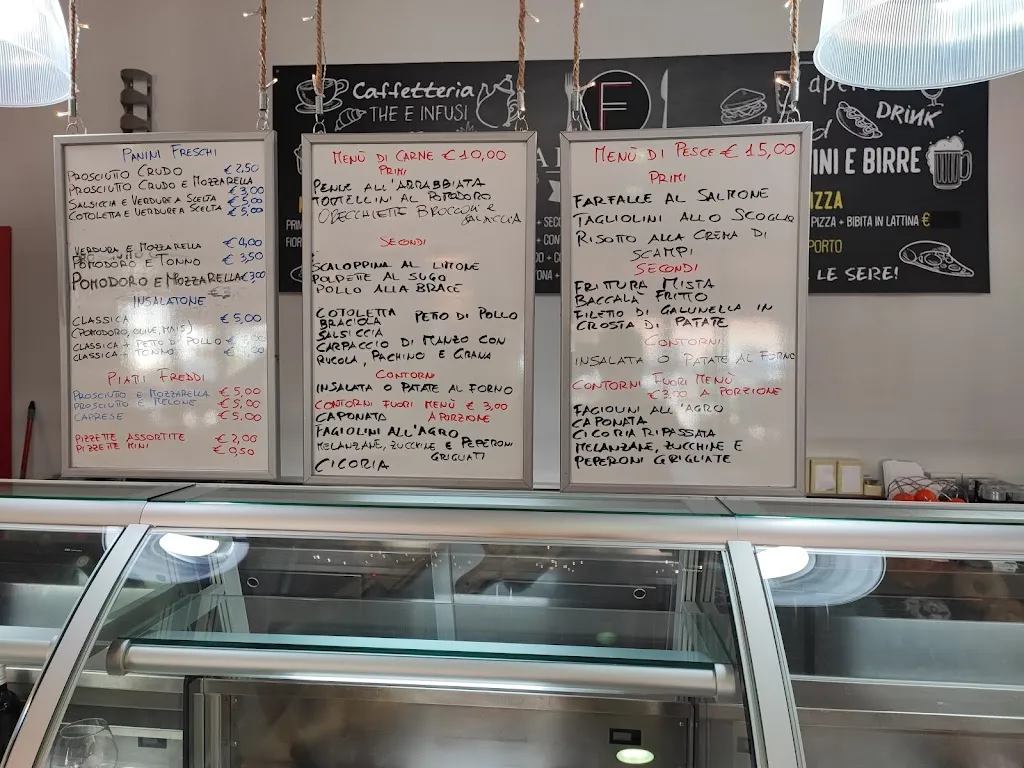 PANINI FRESCHI
PROSCIUTTO CRUDO € 2,50
PROSCIUTTO CRUDO E MOZZARELLA € 3,00
SALSICCIA E VERDURE A SCELTA € 5,00
COTOLETTA E VERDURE A SCELTA € 5,00
VERDURA E MOZZARELLA € 4,00
POMODORO E TONNO € 3,50
POMODORO E MOZZARELLA € 3,00
INSALATONE
CLASSICA € 5,00
(POMODORO, OLIVE, MAIS)
CLASSICA + PETTO DI POLLO €
CLASSICA + TONNO
PIATI FREDDI
PROSCIUTO E MOZZARELLA € 5,00
PROSCIUTO E MELONE € 5,00
CAPRESE € 5,00
PIZZETTE ASSORTITE € 2,00
PIZZETTE MINI € 0,50
MENÙ DI CARNE € 10,00
PRIMI
PENNE ALL'ARRABBIATA
TORTELLINI AL POMODORO
ORECCHIETTE BROCCOLI E
SALSICCIA
SECONDI
SCALOPPINA AL LIMONE
POLPETTE AL SUGO
POLLO ALLA BRACE
COTOLETTA PETO DI POLLO
BRACIOLA
SALSICCIA
CARPACCIO DI MANZO CON
RUCOLA, PACHINO E GRANA
CONTORNI
INSALATA O PATATE AL FORNO
CONTORNI FUORI MENÙ € 3,00
CAPONATA A PORZIONE
FAGIOLINI ALL'AGRO
MELANZANE, ZUCCHINE E PEPERONI
GRIGLIATI
CICORIA
MENÙ DI PESCE € 15,00
PRIMI
FARFALLE AL SALMONE
TAGLIOLINI ALLO SCOGLIO
RISOTTO ALLA CREMA DI
SCAMPI
SECONDI
FRITTURA MISTA
BACCALA FRITTO
FILETTO DI GALLINELLA IN
CROSTA DI PATATE
CONTORNI
INSALATA O PATATE AL FORNO
CONTORNI FUORI MENÙ
€ 3,00 A PORZIONE
FAGIOLINI ALL'AGRO
CAPONATA
CICORIA RIPASSATA
MELANZANE, ZUCCHINE E
PEPERONI GRIGLIATE
Caffetteria
THE E INFUSI
F
DRINK
INI E BIRRE
IZZA
PIZZA + BIBITA IN LATTINA €
PORTO
LE SERE!